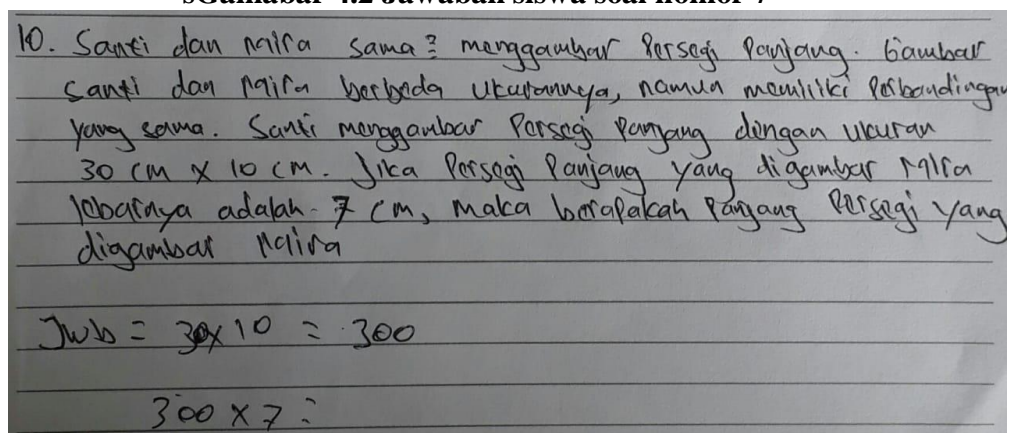 sGamabar 4.2 Jawaban siswa soal nomor 7
10. Santi dan Naira sama² menggambar Persegi Panjang. Gambar
Santi dan Naira berbeda ukurannya, namun memiliki Perbandingan
yang sama. Santi menggambar Persegi Panjang dengan ukuran
30 cm x 10 cm. Jika Persegi Panjang yang digambar Naira
lebarnya adalah 7 cm, maka berapakah Panjang Persegi yang
digambar Naira
Jwb = 30x10 = 300
300 x 7 =